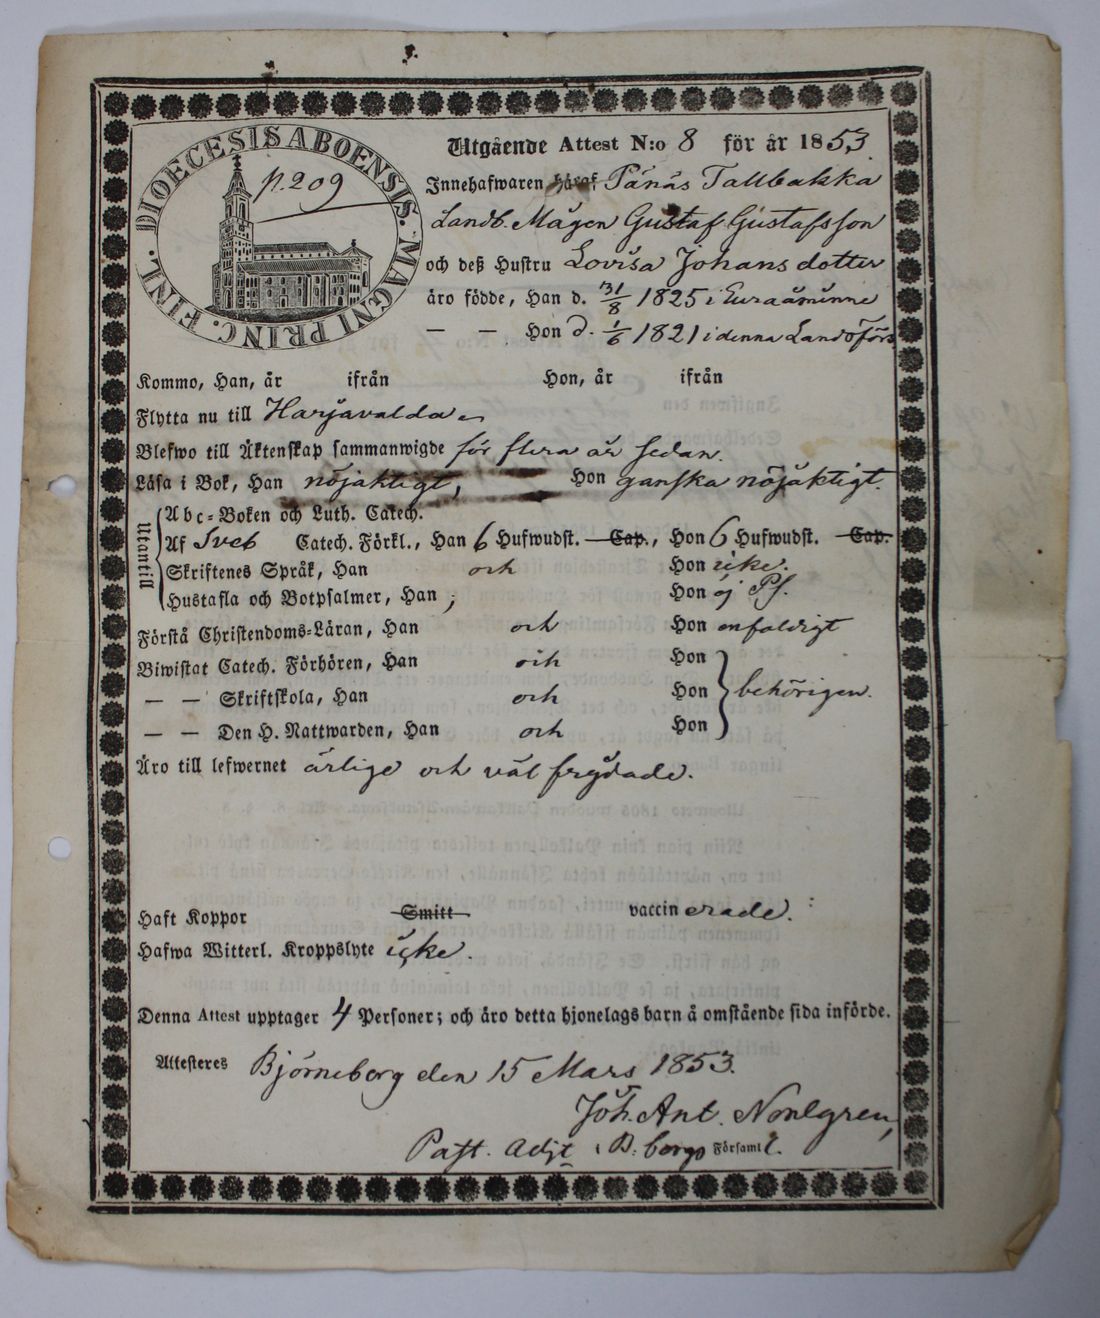 DIOECESIS ABOENSIS. MAGNI PRINC. FINL.
p. 209
Utgående Attest N:o 8 för år 1853.
Innehafwaren häraf Pänäs Tallbakka
Landb. Mågen Gustaf Gustafsson
och deß Hustru Lovisa Johansdotter
äro födde, Han d. 31/8 1825 i Euraåminne
— — Hon d. 1/6 1821 i denna Landsförs
Kommo, Han, år ifrån Hon, år ifrån
Flytta nu till Harjavalda
Blefwo till Äktenskap sammanwigde för flera år sedan.
Läsa i Bok, Han nöjaktigt, Hon ganska nöjaktigt.
Utantill
Abc-Boken och Luth. Catech.
Af Sveb Catech. Förkl., Han 6 Hufwudst. Cap., Hon 6 Hufwudst. Cap.
Skriftenes Språk, Han och Hon icke.
Hustafla och Botpsalmer, Han, Hon ej Ps.
Förstå Christendoms-Läran, Han och Hon enfaldigt
Biwistat Catech. Förhören, Han och Hon
— — Skriftskola, Han och Hon behörigen.
— — Den H. Nattwarden, Han och Hon
Äro till lefwernet ärlige och väl frejdade.
Haft Koppor Smitt vaccinerade.
Hafwa Witterl. Kroppslyte icke.
Denna Attest upptager 4 Personer; och äro detta hjonelags barn å omstående sida införde.
Attesteres Björneborg den 15 Mars 1853.
Joh. Ant. Nordgren,
Past. Adjt i B:borgs Församl.